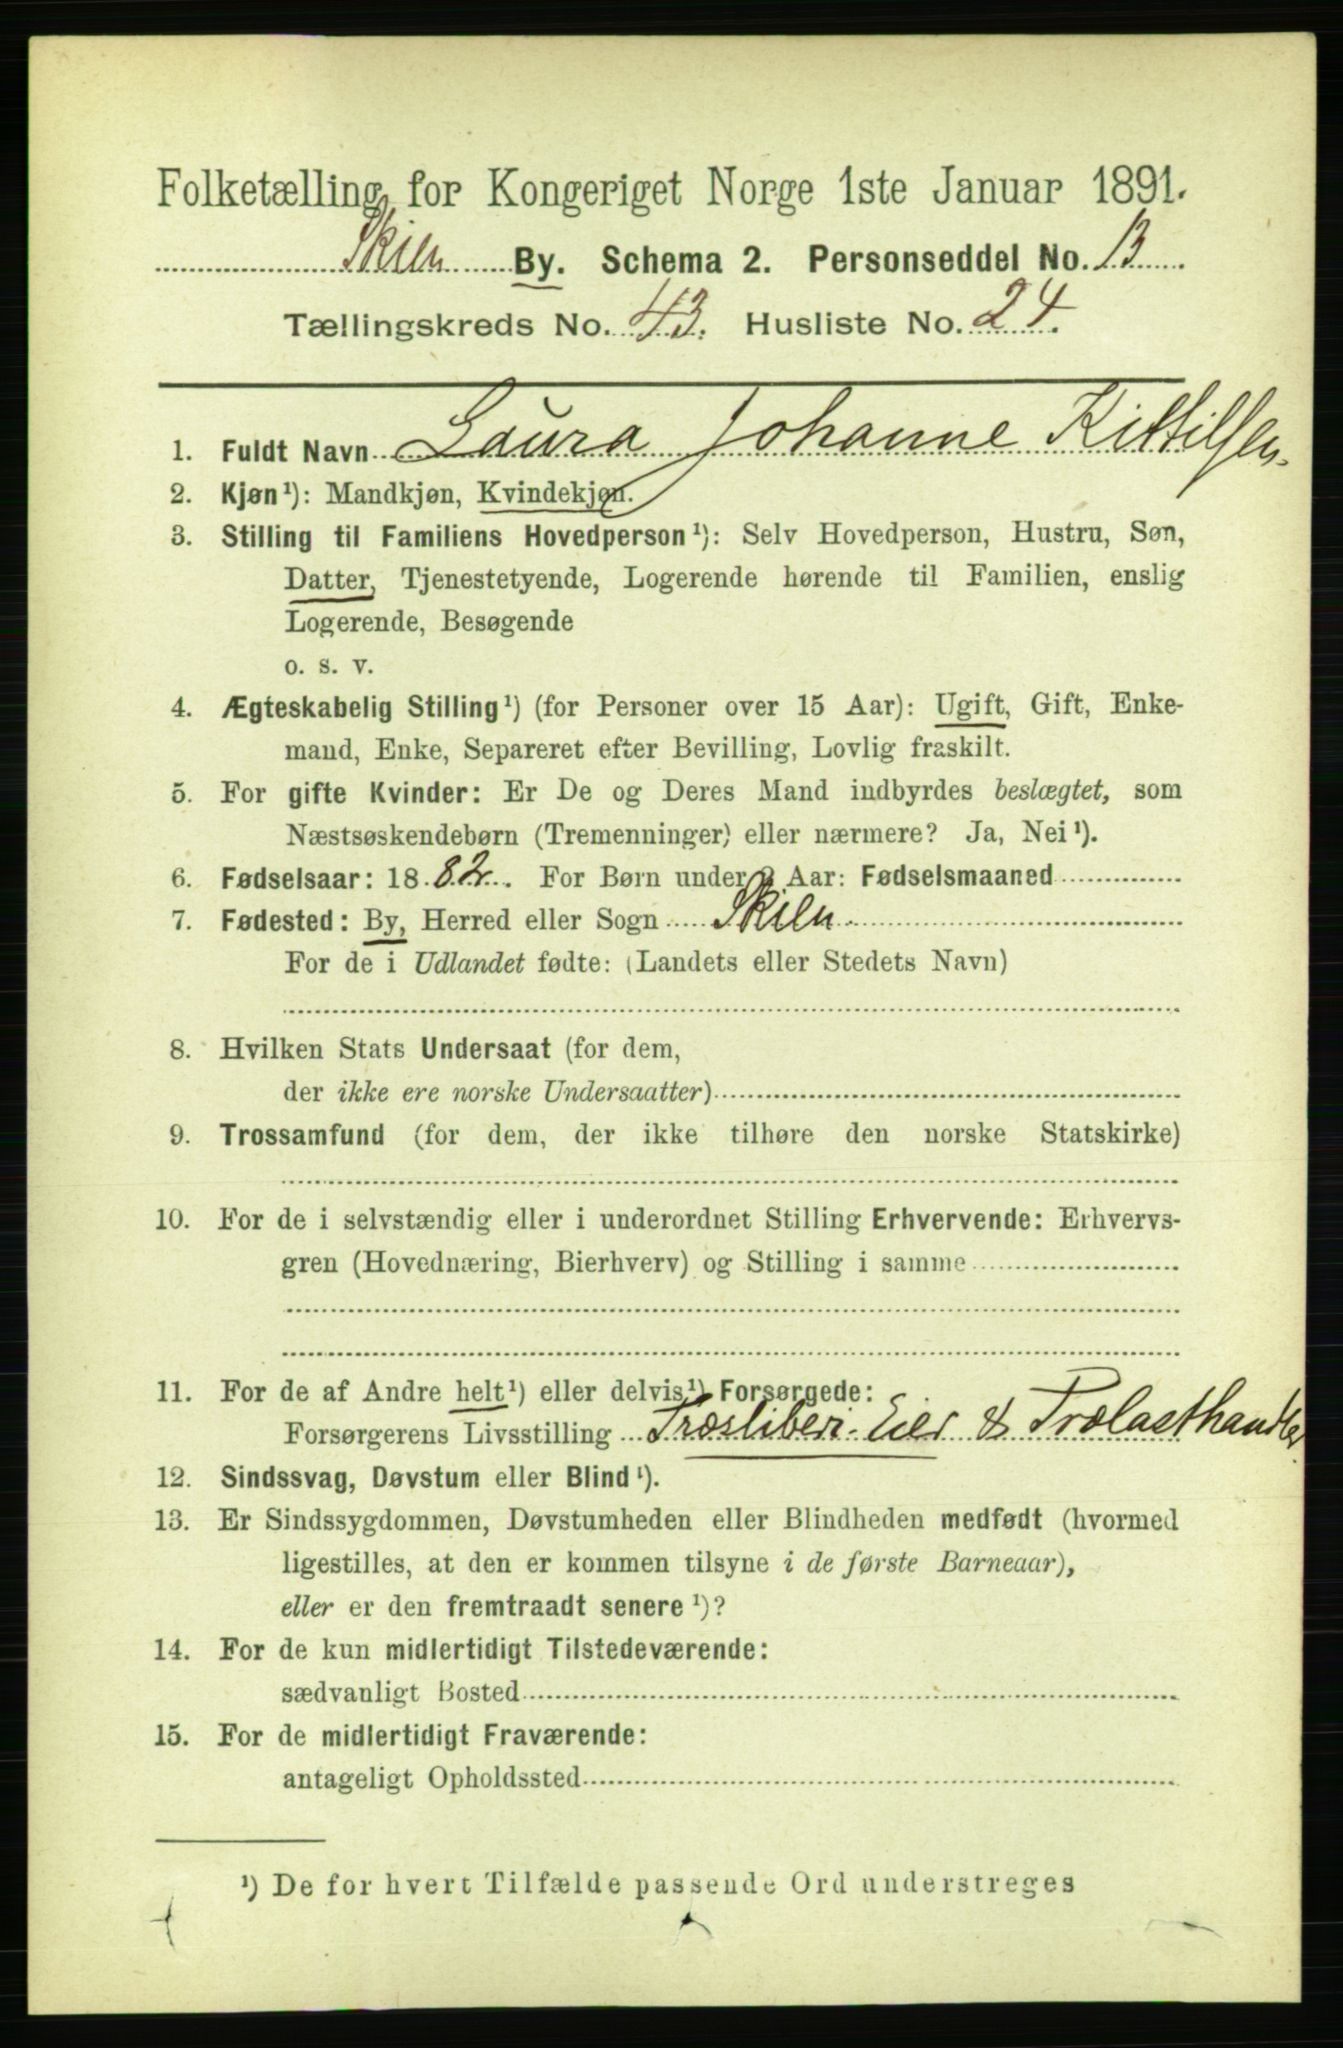 Folketælling for Kongeriget Norge 1ste Januar 1891.
Skien By. Schema 2. Personseddel No. 13
Tællingskreds No. 43. Husliste No. 24.
1. Fuldt Navn Laura Johanne Kittilsen.
2. Kjøn¹): Mandkjøn, Kvindekjøn.
3. Stilling til Familiens Hovedperson¹): Selv Hovedperson, Hustru, Søn,
Datter, Tjenestetyende, Logerende hørende til Familien, enslig
Logerende, Besøgende
o. s. v.
4. Ægteskabelig Stilling¹) (for Personer over 15 Aar): Ugift, Gift, Enke-
mand, Enke, Separeret efter Bevilling, Lovlig fraskilt.
5. For gifte Kvinder: Er De og Deres Mand indbyrdes beslægtet, som
Næstsøskendebørn (Tremenninger) eller nærmere? Ja, Nei¹).
6. Fødselsaar: 1882. For Børn under 2 Aar: Fødselsmaaned
7. Fødested: By, Herred eller Sogn Skien.
For de i Udlandet fødte: (Landets eller Stedets Navn)
8. Hvilken Stats Undersaat (for dem,
der ikke ere norske Undersaatter)
9. Trossamfund (for dem, der ikke tilhøre den norske Statskirke)
10. For de i selvstændig eller i underordnet Stilling Erhvervende: Erhvervs-
gren (Hovednæring, Bierhverv) og Stilling i samme
11. For de af Andre helt¹) eller delvis¹) Forsørgede:
Forsørgerens Livsstilling Træsliberi-Eier & Trælasthandler
12. Sindssvag, Døvstum eller Blind¹).
13. Er Sindssygdommen, Døvstumheden eller Blindheden medfødt (hvormed
ligestilles, at den er kommen tilsyne i de første Barneaar),
eller er den fremtraadt senere¹)?
14. For de kun midlertidigt Tilstedeværende:
sædvanligt Bosted
15. For de midlertidigt Fraværende:
antageligt Opholdssted
¹) De for hvert Tilfælde passende Ord understreges